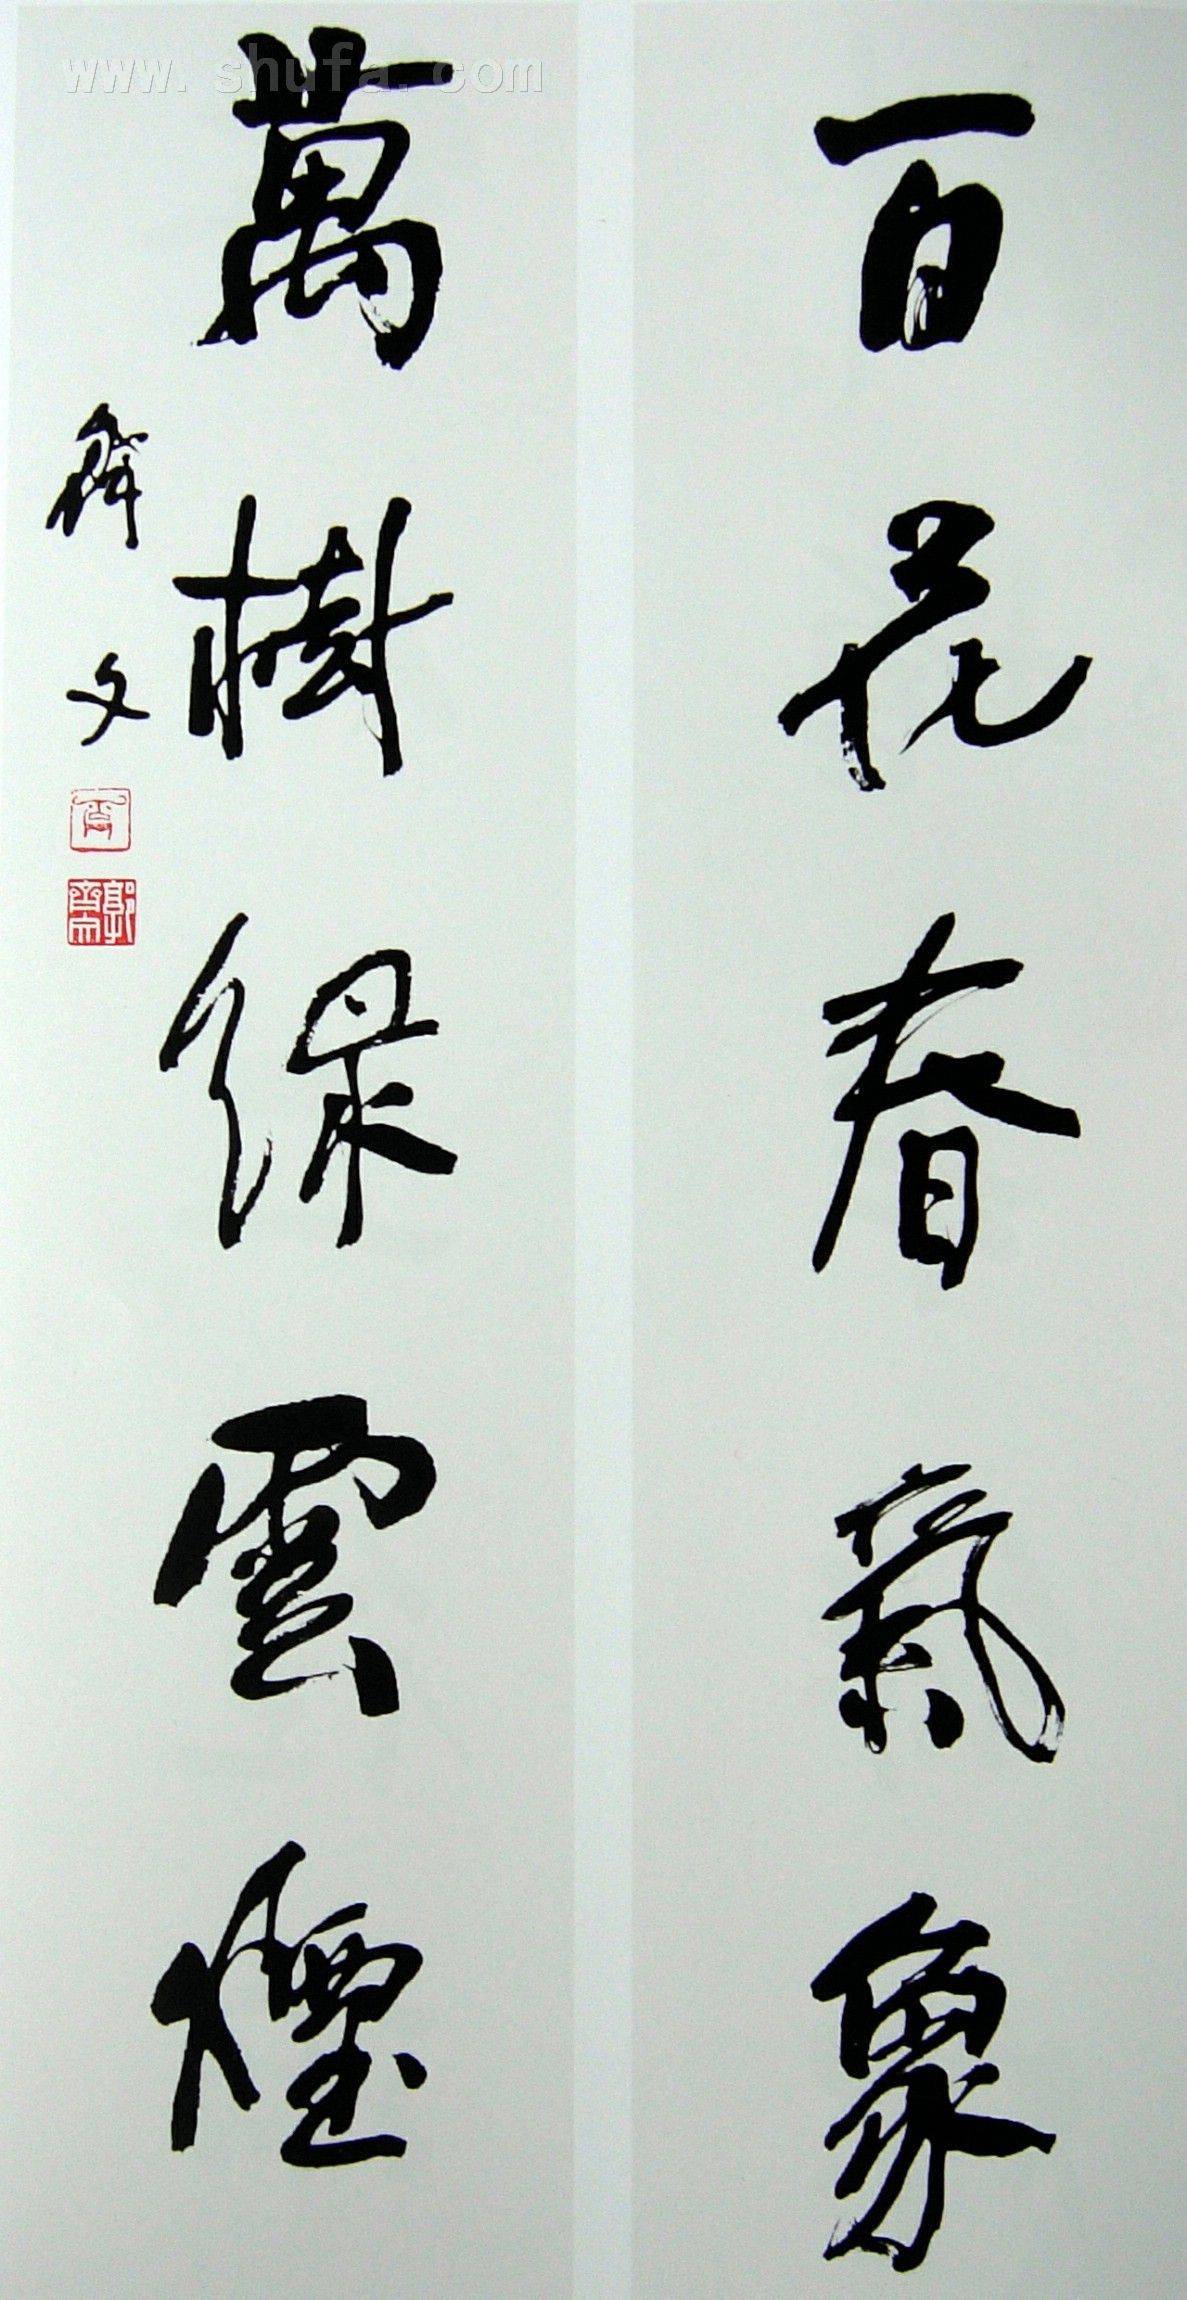 百花春氣象
萬樹綠雲煙
齊文
www.shufa.com